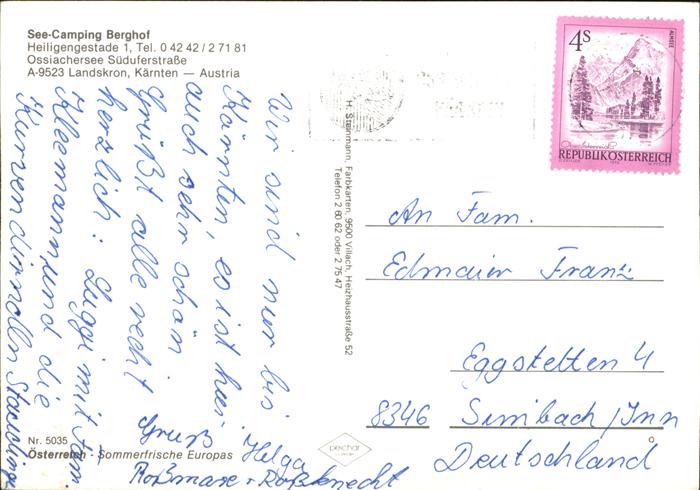 See-Camping Berghof
Heiligengestade 1, Tel. 0 42 42 / 2 71 81
Ossiachersee Süduferstraße
A-9523 Landskron, Kärnten — Austria
Wir sind nur bis
Kärnten, es ist hier
auch sehr schön
Grüßt alle recht
herzlich: Luggi mit Fam.
Kleemann, und die
Gruß Helga
Roßmare + Roßknecht
Nr. 5035
Österreich · Sommerfrische Europas
H. Steinmann, Farbkarten, 9500 Villach, Heizhausstraße 52
Telefon 2 80 62 oder 2 75 47
pechar
4S
ALMSEE
REPUBLIK ÖSTERREICH
An Fam.
Edmaier Franz
Eggstetten 4
8346 Simbach/Inn
Deutschland